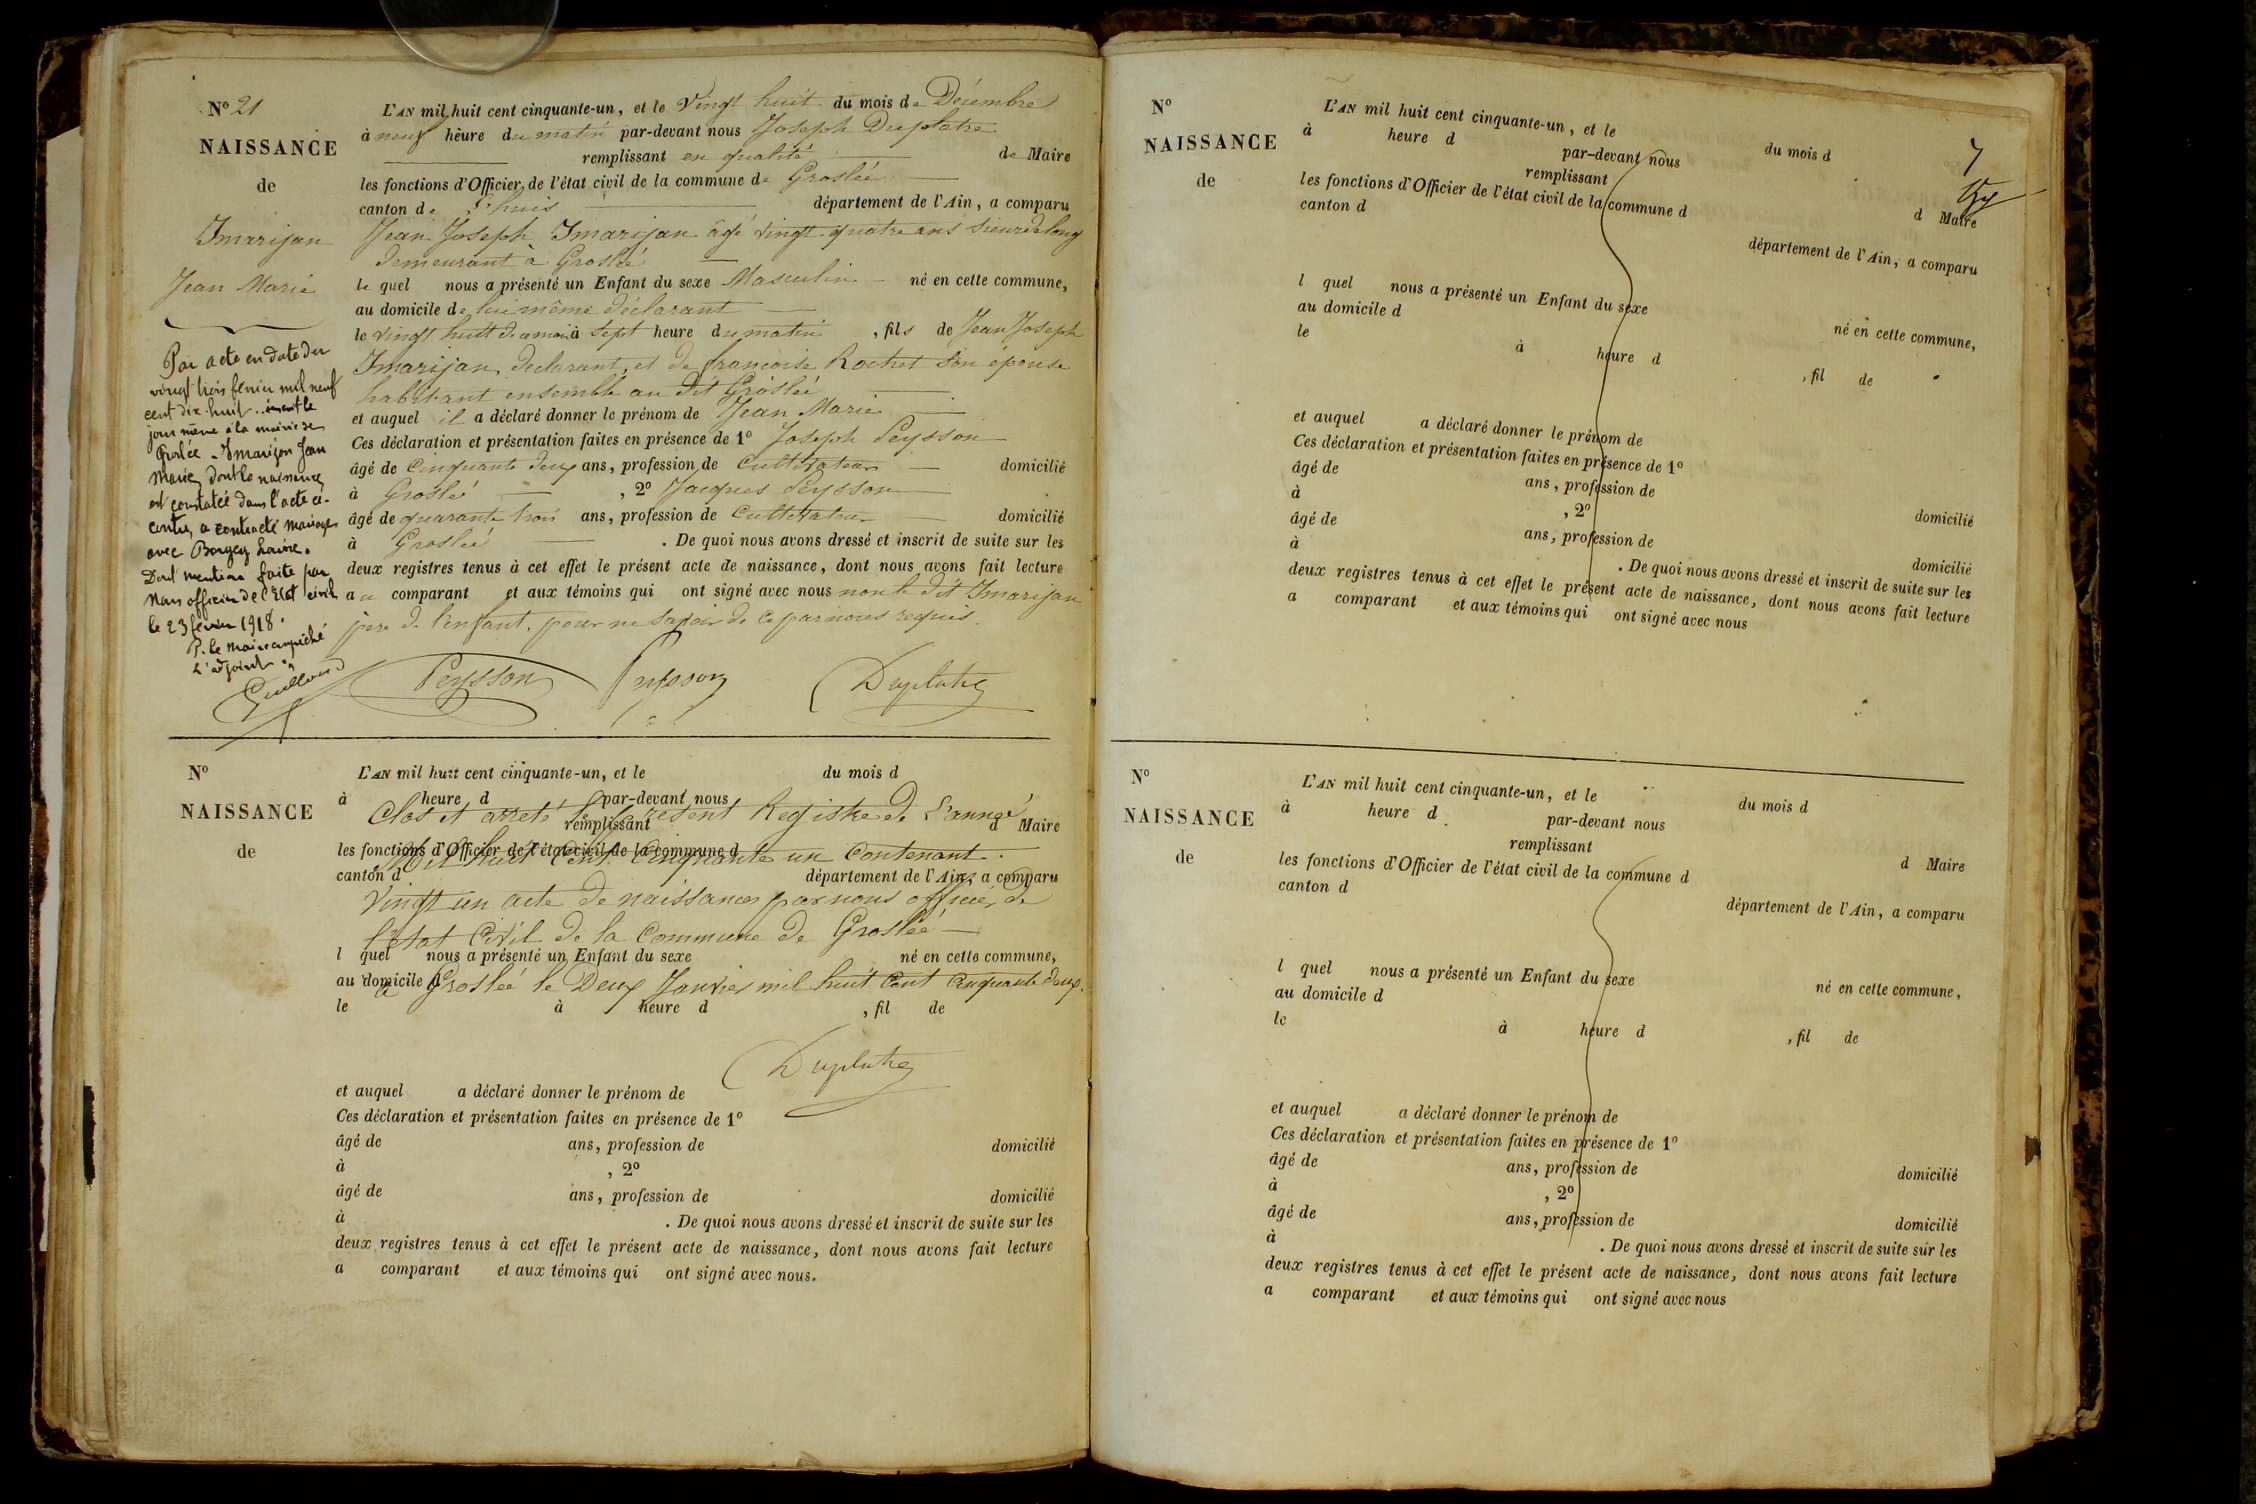 Nº 21
NAISSANCE
de
Imarijan
Jean Marie
L'AN mil huit cent cinquante-un, et le Vingt huit du mois de Décembre
à neuf heure du matin par-devant nous Joseph Duplatre
remplissant en qualité de Maire
les fonctions d'Officier de l'état civil de la commune de Groslée
canton de Lhuis département de l'Ain, a comparu
Jean Joseph Imarijan âgé vingt quatre ans Sieur de long
demeurant à Groslée
le quel nous a présenté un Enfant du sexe Masculin né en cette commune,
au domicile de lui même déclarant
le vingt huit du mois à sept heure du matin, fils de Jean Joseph
Imarijan, déclarant, et de françoise Rochet son épouse
habitant ensemble au dit Groslée
et auquel il a déclaré donner le prénom de Jean Marie
Ces déclaration et présentation faites en présence de 1º Joseph Peysson
âgé de Cinquante deux ans, profession de Cultivateur domicilié
à Groslée, 2º Jacques Peysson
âgé de quarante trois ans, profession de Cultivateur domicilié
à Groslée. De quoi nous avons dressé et inscrit de suite sur les
deux registres tenus à cet effet le présent acte de naissance, dont nous avons fait lecture
au comparant et aux témoins qui ont signé avec nous non le dit Imarijan
père de l'enfant, pour ne savoir de ce par nous requis.
Peysson Peysson Duplatre
Par acte en date du
vingt trois février mil neuf
cent dix-huit .. inscrit le
jour même à la mairie de
Groslée - Imarijon Jean
Marie, dont la naissance
est constatée dans l'acte ci-
contre, a contracté mariage
avec Borgey
Dont mention faite par
Nous officier de l'Etat civil
le 23 février 1918.
P. le Maire empêché
L'adjoint.
Nº
NAISSANCE
de
L'AN mil huit cent cinquante-un, et le du mois d
à heure d par-devant nous
Clos et arreté le present Registre de L'année
remplissant d Maire
les fonctions d'Officier de l'état civil de la commune d
Mil huit Cent Cinquante un Contenant
canton d département de l'Ain, a comparu
Vingt un acte de naissances par nous officier de
l'Etat Civil de la Commune de Groslée
l quel nous a présenté un Enfant du sexe né en cette commune,
au domicile d
a Groslée le Deux Janvier mil huit Cent Cinquante deux.
le à heure d , fil de
Duplatre
et auquel a déclaré donner le prénom de
Ces déclaration et présentation faites en présence de 1º
âgé de ans, profession de domicilié
à , 2º
âgé de ans, profession de domicilié
à . De quoi nous avons dressé et inscrit de suite sur les
deux registres tenus à cet effet le présent acte de naissance, dont nous avons fait lecture
a comparant et aux témoins qui ont signé avec nous.
Nº
NAISSANCE
de
L'AN mil huit cent cinquante-un, et le du mois d
à heure d par-devant nous
remplissant d Maire
les fonctions d'Officier de l'état civil de la commune d
canton d département de l'Ain, a comparu
l quel nous a présenté un Enfant du sexe né en cette commune,
au domicile d
le à heure d , fil de
et auquel a déclaré donner le prénom de
Ces déclaration et présentation faites en présence de 1º
âgé de ans, profession de domicilié
à , 2º
âgé de ans, profession de domicilié
à . De quoi nous avons dressé et inscrit de suite sur les
deux registres tenus à cet effet le présent acte de naissance, dont nous avons fait lecture
a comparant et aux témoins qui ont signé avec nous
Nº
NAISSANCE
de
L'AN mil huit cent cinquante-un, et le du mois d
à heure d par-devant nous
remplissant d Maire
les fonctions d'Officier de l'état civil de la commune d
canton d département de l'Ain, a comparu
l quel nous a présenté un Enfant du sexe né en cette commune,
au domicile d
le à heure d , fil de
et auquel a déclaré donner le prénom de
Ces déclaration et présentation faites en présence de 1º
âgé de ans, profession de domicilié
à , 2º
âgé de ans, profession de domicilié
à . De quoi nous avons dressé et inscrit de suite sur les
deux registres tenus à cet effet le présent acte de naissance, dont nous avons fait lecture
a comparant et aux témoins qui ont signé avec nous